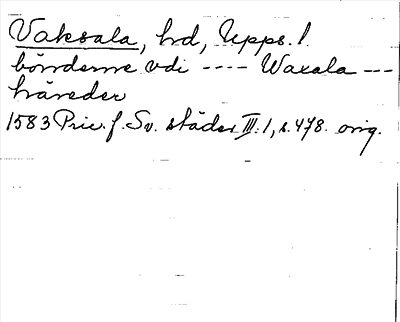 Vaksala, hd, Upps. l.
bönderne vdi ---- Waxala ---
häreder
1583 Priv. f. Sv. städer III:1, s. 478. orig.